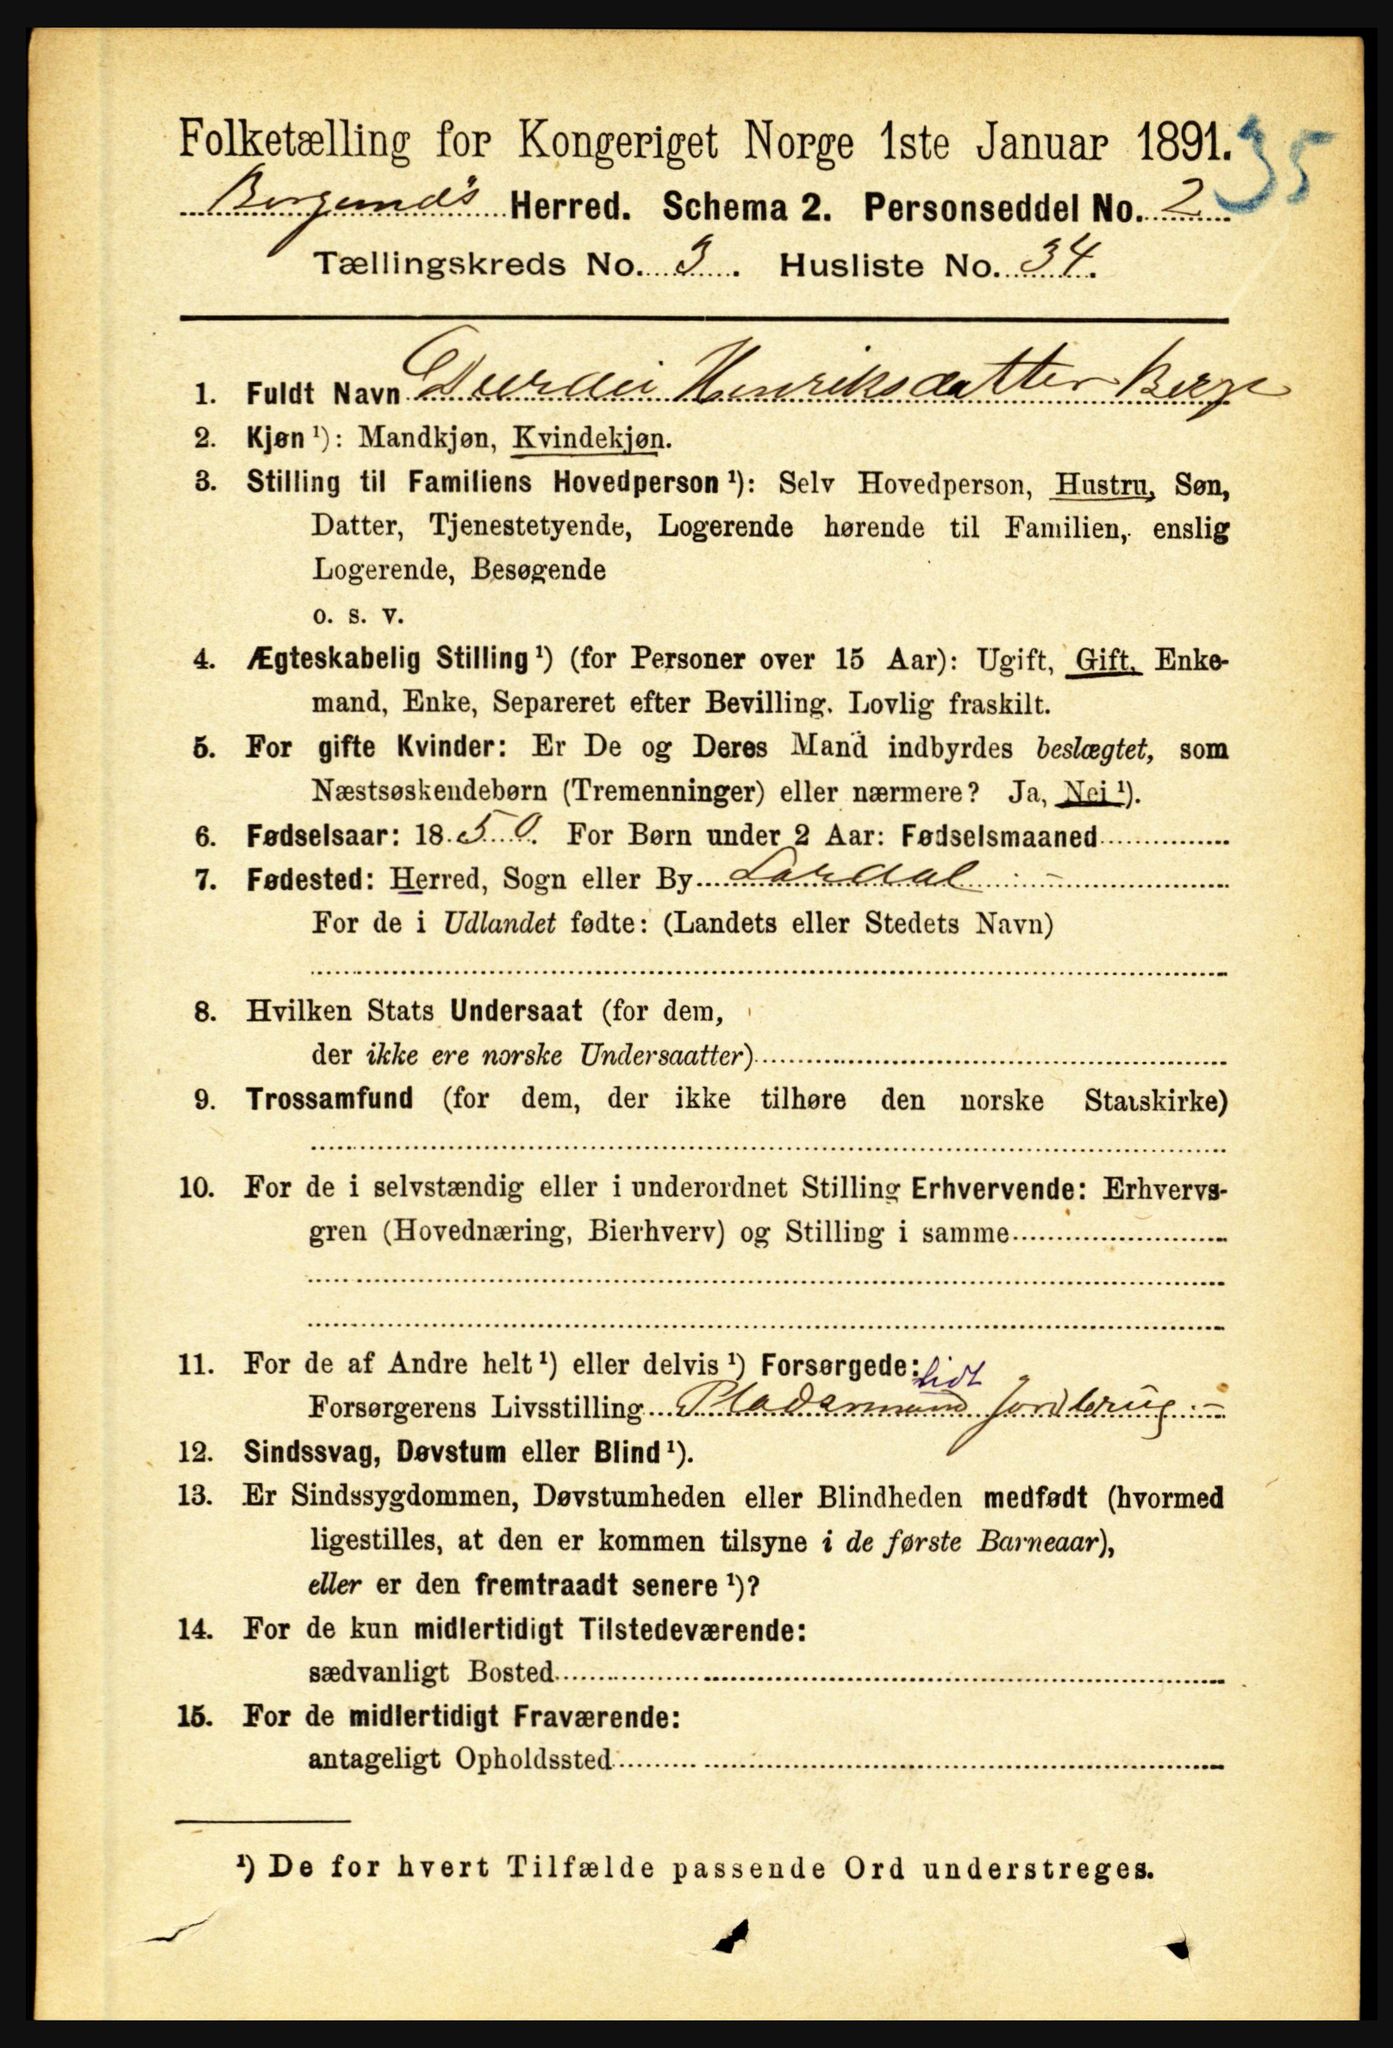 Folketælling for Kongeriget Norge 1ste Januar 1891. 35
Borgund's Herred. Schema 2. Personseddel No. 2
Tællingskreds No. 3. Husliste No. 34.
1. Fuldt Navn Henriksdatter Berge
2. Kjøn ¹): Mandkjøn, Kvindekjøn.
3. Stilling til Familiens Hovedperson ¹): Selv Hovedperson, Hustru, Søn,
Datter, Tjenestetyende, Logerende hørende til Familien, enslig
Logerende, Besøgende
o. s. v.
4. Ægteskabelig Stilling ¹) (for Personer over 15 Aar): Ugift, Gift, Enke-
mand, Enke, Separeret efter Bevilling. Lovlig fraskilt.
5. For gifte Kvinder: Er De og Deres Mand indbyrdes beslægtet, som
Næstsøskendebørn (Tremenninger) eller nærmere? Ja, Nei ¹).
6. Fødselsaar: 1850. For Børn under 2 Aar: Fødselsmaaned
7. Fødested: Herred, Sogn eller By Lærdal
For de i Udlandet fødte: (Landets eller Stedets Navn)
8. Hvilken Stats Undersaat (for dem,
der ikke ere norske Undersaatter)
9. Trossamfund (for dem, der ikke tilhøre den norske Statskirke)
10. For de i selvstændig eller i underordnet Stilling Erhvervende: Erhvervs-
gren (Hovednæring, Bierhverv) og Stilling i samme
11. For de af Andre helt ¹) eller delvis ¹) Forsørgede:
Forsørgerens Livsstilling Pladsmand lidt Jordbrug
12. Sindssvag, Døvstum eller Blind ¹).
13. Er Sindssygdommen, Døvstumheden eller Blindheden medfødt (hvormed
ligestilles, at den er kommen tilsyne i de første Barneaar),
eller er den fremtraadt senere ¹)?
14. For de kun midlertidigt Tilstedeværende:
sædvanligt Bosted
15. For de midlertidigt Fraværende:
antageligt Opholdssted
¹) De for hvert Tilfælde passende Ord understreges.